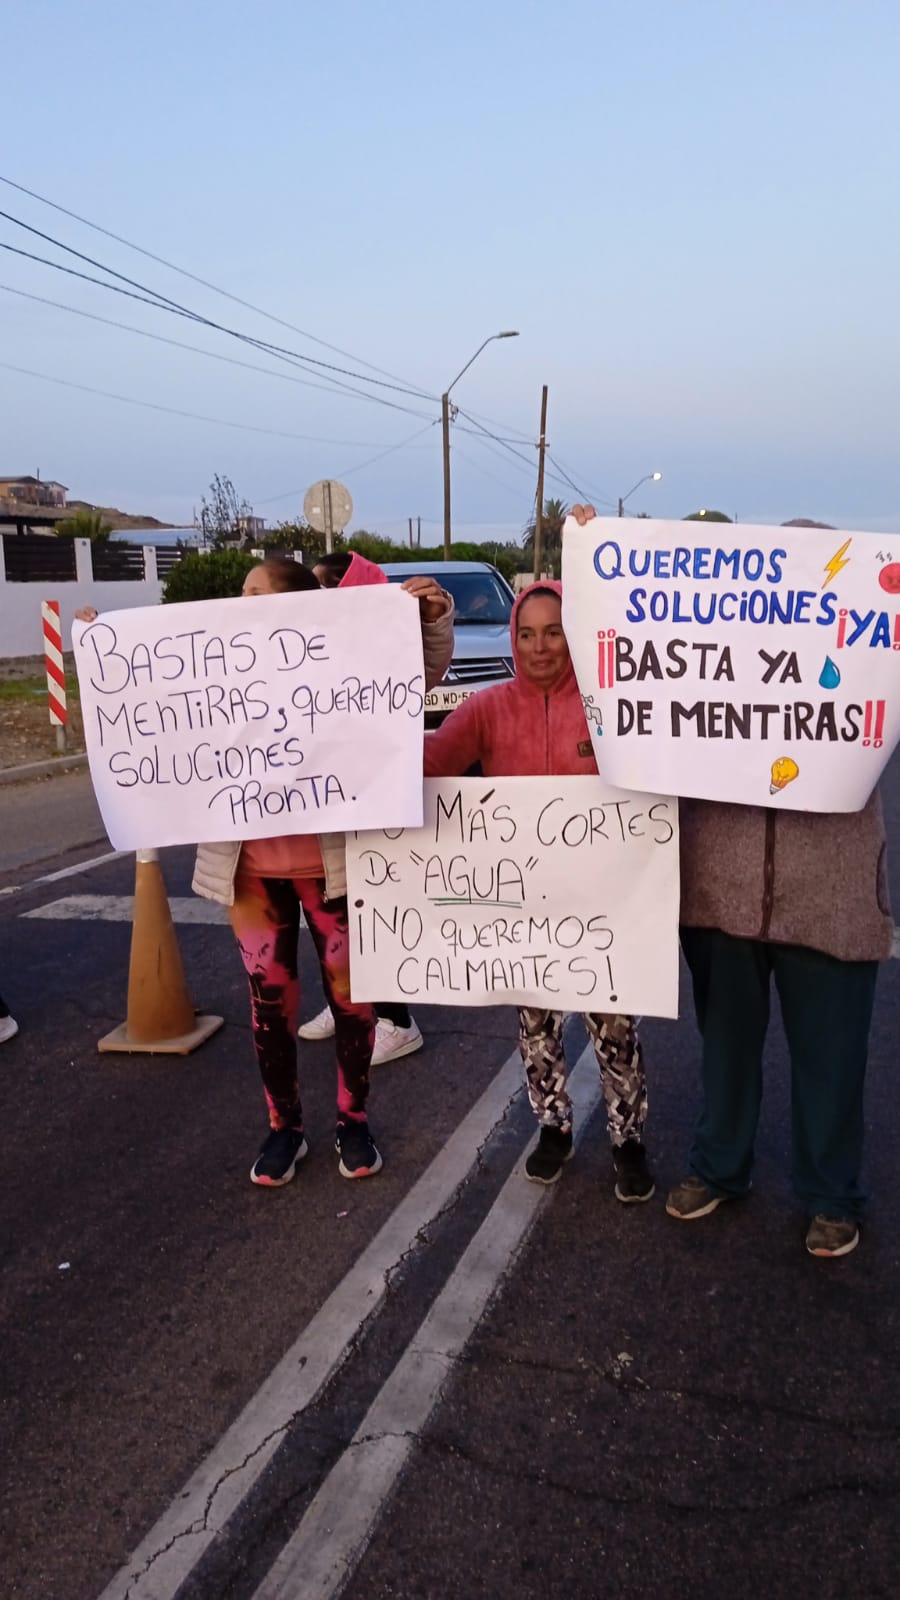 BASTAS DE
MENTIRAS, QUEREMOS
SOLUCIONES
PRONTA.
QUEREMOS
SOLUCIONES ¡YA!
¡¡BASTA YA
DE MENTIRAS!!
MÁS CORTES
DE "AGUA".
¡NO QUEREMOS
CALMANTES!